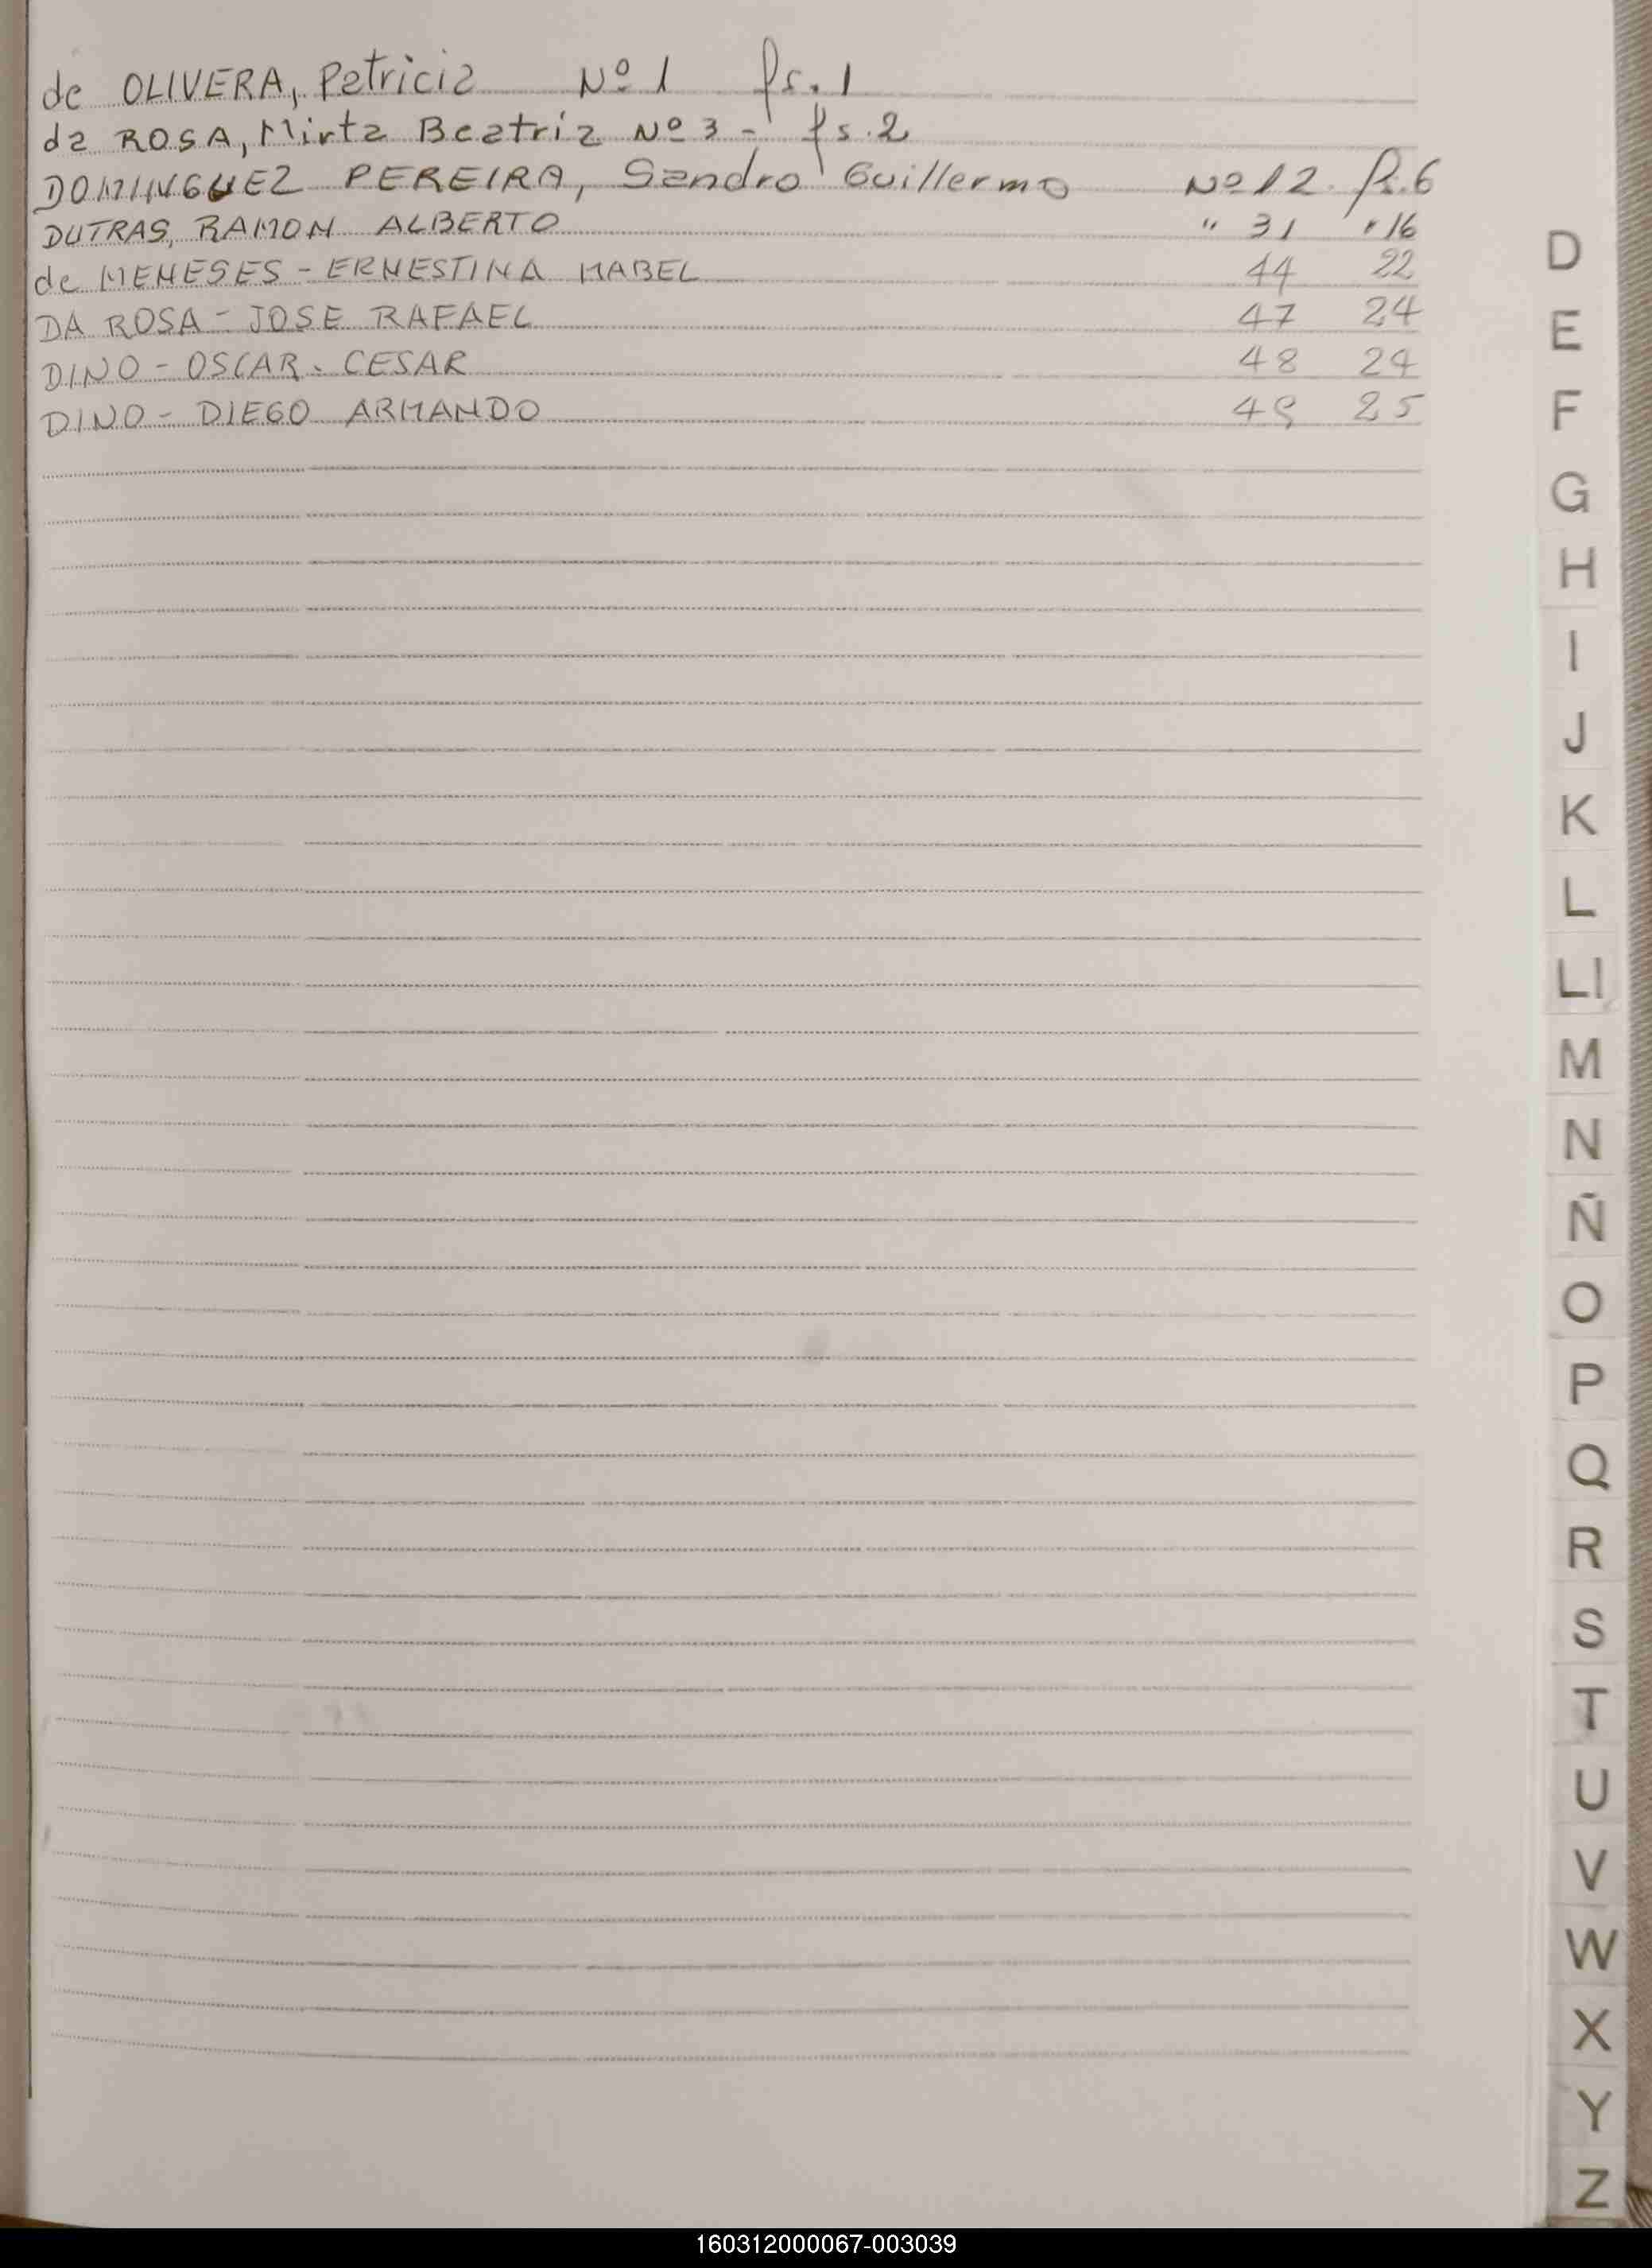 de OLIVERA, Patricia Nº 1 fs. 1
da ROSA, Mirta Beatriz Nº 3 - fs. 2
DOMINGUEZ PEREIRA, Sandro Guillermo Nº 12. fs. 6
DUTRAS, RAMON ALBERTO " 31 " 16
de MENESES - ERNESTINA MABEL 44 22
DA ROSA - JOSE RAFAEL 47 24
DINO - OSCAR. CESAR 48 24
DINO - DIEGO ARMANDO 49 25
D
E
F
G
H
I
J
K
L
Ll
M
N
Ñ
O
P
Q
R
S
T
U
V
W
X
Y
Z
160312000067-003039